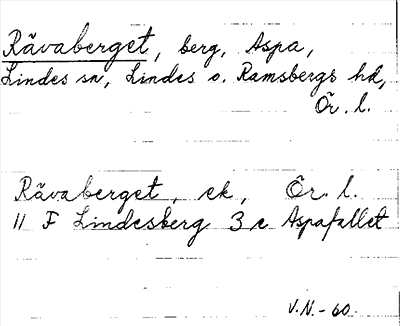 Rävaberget, berg, Aspa,
Lindes sn, Lindes o. Ramsbergs hd,
Ör. l.
Rävaberget, ek, Ör. l.
11 F Lindesberg 3 c Aspafallet
V.N. - 60.